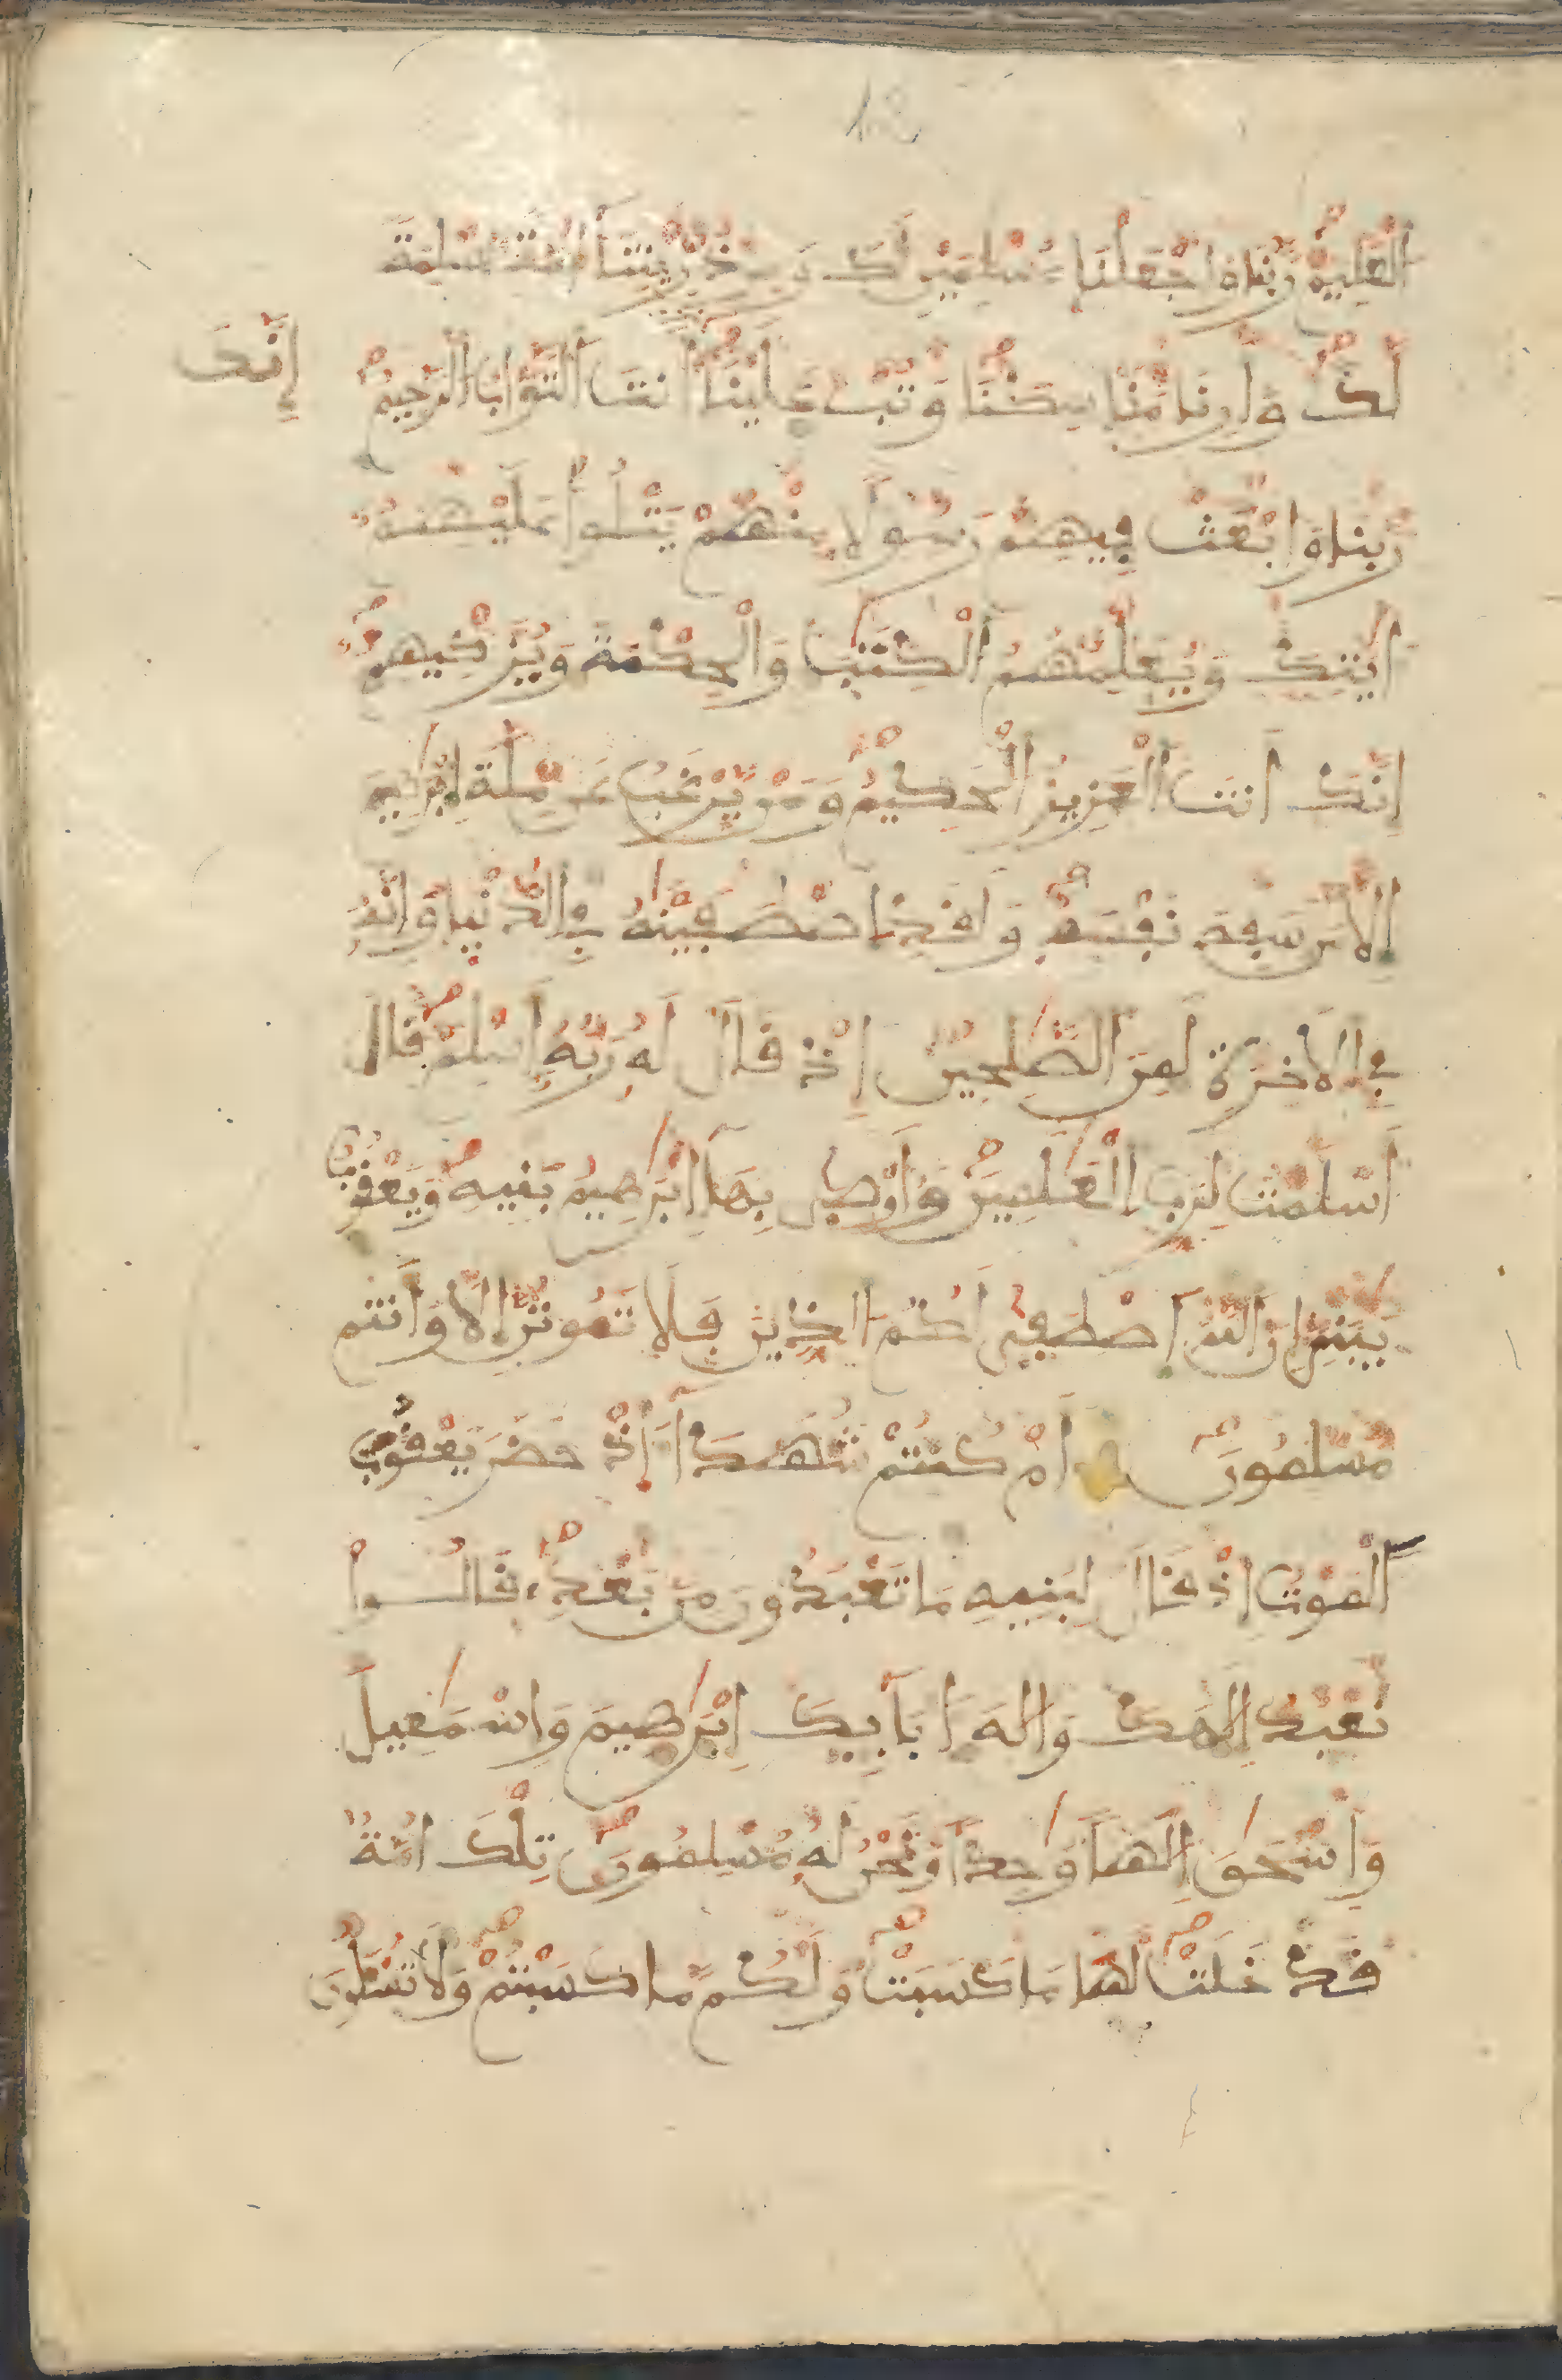 12
اَلْعَلِيمُ رَبَّنَا وَاجْعَلْنَا مُسْلِمَيْنِ لَكَ وَمِن ذُرِّيَّتِنَا أُمَّةً مُّسْلِمَةً
لَّكَ وَأَرِنَا مَنَاسِكَنَا وَتُبْ عَلَيْنَا أَنتَ اَلتَّوَّابُ اَلرَّحِيمُ
إِنَّكَ
رَبَّنَا وَابْعَثْ فِيهِمْ رَسُولًا مِّنْهُمْ يَتْلُوا عَلَيْهِمُۥ
ءَايَٰتِكَ وَيُعَلِّمُهُمُ اُلْكِتَٰبَ وَالْحِكْمَةَ وَيُزَكِّيهِمُۥ
إِنَّكَ أَنتَ اَلْعَزِيزُ اُلْحَكِيمُ وَمَنْ يَّرْغَبُ عَن مِّلَّةِ إِبْرَٰهِيمَ
إِلَّا مَن سَفِهَ نَفْسَهُ وَلَقَدِ اِصْطَفَيْنَٰهُ فِي اِلدُّنْيَا وَإِنَّهُ
فِي اِلْأَخِرَةِ لَمِنَ اَلصَّٰلِحِينَ إِذْ قَالَ لَهُ رَبُّهُ أَسْلِمْ قَالَ
أَسْلَمْتُ لِرَبِّ اِلْعَٰلَمِينَ وَأَوْصَىٰ بِهَا إِبْرَٰهِيمُ بَنِيهِ وَيَعْقُوبُ
يَٰبَنِيَّ إِنَّ اَللَّهَ اَصْطَفَىٰ لَكُمُ اُلدِّينَ فَلَا تَمُوتُنَّ إِلَّا وَأَنتُم
مُّسْلِمُونَ أَمْ كُنتُمْ شُهَدَآءَ اِذْ حَضَرَ يَعْقُوبَ
اَلْمَوْتُ إِذْ قَالَ لِبَنِيهِ مَا تَعْبُدُونَ مِن بَعْدِي قَالُوا
نَعْبُدُ إِلَٰهَكَ وَإِلَٰهَ ءَابَآئِكَ إِبْرَٰهِيمَ وَإِسْمَٰعِيلَ
وَإِسْحَٰقَ إِلَٰهًا وَٰحِدًا وَنَحْنُ لَهُ مُسْلِمُونَ تِلْكَ أُمَّةٌ
قَدْ خَلَتْ لَهَا مَا كَسَبَتْ وَلَكُم مَّا كَسَبْتُمْ وَلَا تُسْـَٔلُونَ